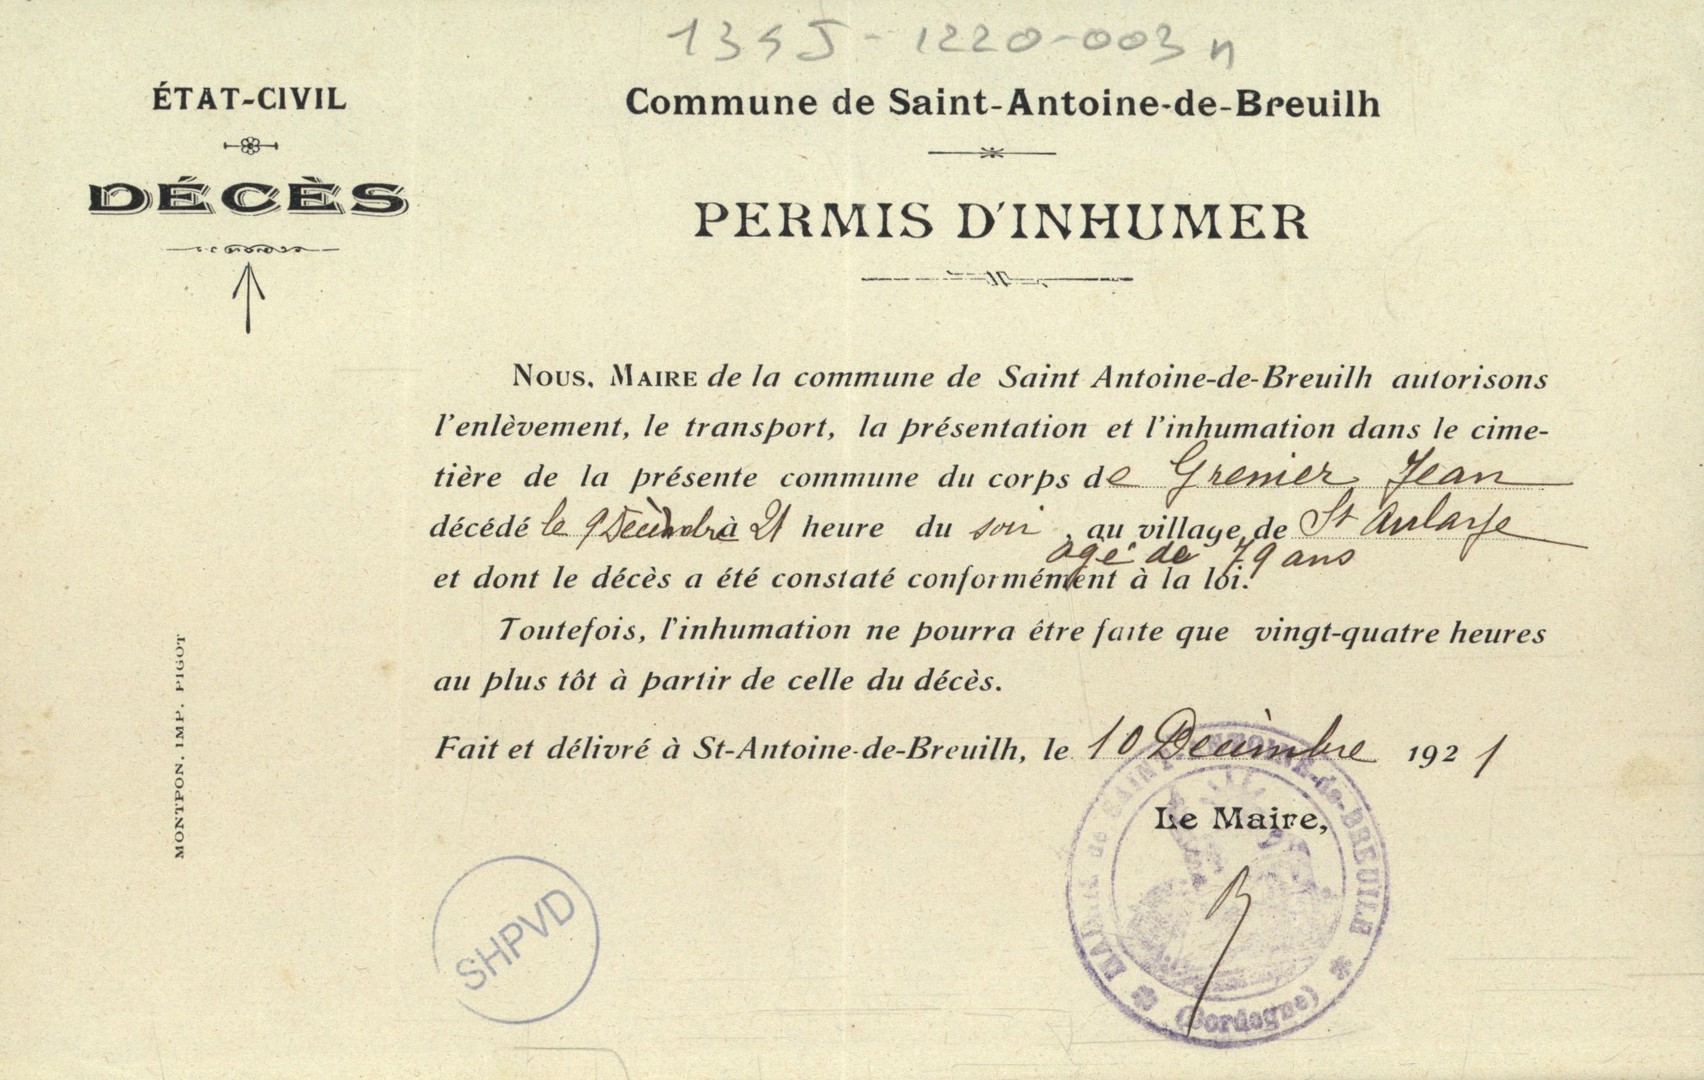 1345-1220-003 n
ÉTAT-CIVIL
DÉCÈS
Commune de Saint-Antoine-de-Breuilh
PERMIS D'INHUMER
NOUS, MAIRE de la commune de Saint Antoine-de-Breuilh autorisons
l'enlèvement, le transport, la présentation et l'inhumation dans le cime-
tière de la présente commune du corps de Grenier Jean
décédé le 9 Décembre à 21 heure du soir, au village de St Aulaye
agé de 79 ans
et dont le décès a été constaté conformément à la loi.
Toutefois, l'inhumation ne pourra être faite que vingt-quatre heures
au plus tôt à partir de celle du décès.
Fait et délivré à St-Antoine-de-Breuilh, le 10 Décembre 1921
Le Maire,
MAIRIE de SAINT-ANTOINE-de-BREUILH
(Dordogne)
SHPVD
MONTPON, IMP. PIGOT